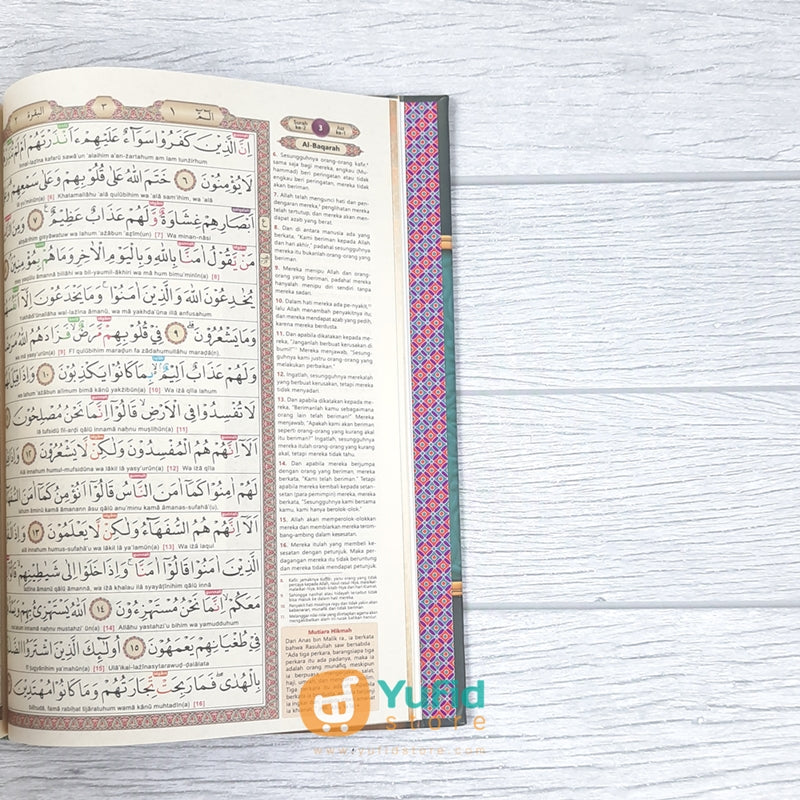 ٣
١
الۤمّۤ
البقرة ٢
اِنَّ الَّذِيْنَ كَفَرُوْا سَوَاۤءٌ عَلَيْهِمْ ءَاَنْذَرْتَهُمْ اَمْ لَمْ
innal-lażīna kafarū sawā'un 'alaihim a'anżartahum am lam tunżirhum
لَا يُؤْمِنُوْنَ ٦ خَتَمَ اللّٰهُ عَلٰى قُلُوْبِهِمْ وَعَلٰى سَمْعِهِمْ
lā yu'minūn(a) [6] Khatamallāhu 'alā qulūbihim wa 'alā sam'ihim, wa 'alā
اَبْصَارِهِمْ غِشَاوَةٌ وَّلَهُمْ عَذَابٌ عَظِيْمٌ ٧ وَمِنَ
abṣārihim gisyāwatuw wa lahum 'ażābun 'aẓīm(un) [7] Wa minan-nāsi
مَنْ يَّقُوْلُ اٰمَنَّا بِاللّٰهِ وَبِالْيَوْمِ الْاٰخِرِ وَمَا هُمْ بِمُؤْمِنِيْنَ
yaqūlu āmannā billāhi wa bil-yaumil-ākhiri wa mā hum bimu'minīn(a) [8]
يُخٰدِعُوْنَ اللّٰهَ وَالَّذِيْنَ اٰمَنُوْا وَمَا يَخْدَعُوْنَ اِلَّآ
Yukhādi'ūnallāha wal-lażīna āmanū, wa mā yakhda'ūna illā anfusahum
وَمَا يَشْعُرُوْنَ ٩ فِيْ قُلُوْبِهِمْ مَّرَضٌ فَزَادَهُمُ اللّٰهُ
wa mā yasy'urūn(a) [9] Fī qulūbihim maraḍun fa zādahumullāhu maraḍā(n),
وَلَهُمْ عَذَابٌ اَلِيْمٌ ۢ بِمَا كَانُوْا يَكْذِبُوْنَ ١٠ وَاِذَا قِيْلَ
wa lahum 'ażābun alīmum bimā kānū yakżibūn(a) [10] Wa iżā qīla lahum
لَا تُفْسِدُوْا فِى الْاَرْضِ قَالُوْٓا اِنَّمَا نَحْنُ مُصْلِحُوْنَ
lā tufsidū fil-arḍi qālū innamā naḥnu muṣliḥūn(a) [11]
اَلَآ اِنَّهُمْ هُمُ الْمُفْسِدُوْنَ وَلٰكِنْ لَّا يَشْعُرُوْنَ ١٢ وَاِذَا
Alā innahum humul-mufsidūna wa lākil lā yasy'urūn(a) [12] Wa iżā qīla
لَهُمْ اٰمِنُوْا كَمَآ اٰمَنَ النَّاسُ قَالُوْٓا اَنُؤْمِنُ كَمَآ اٰمَنَ السُّفَهَاۤءُ
lahum āminū kamā āmanan-nāsu qālū anu'minu kamā āmanas-sufahā'(u)
اَلَآ اِنَّهُمْ هُمُ السُّفَهَاۤءُ وَلٰكِنْ لَّا يَعْلَمُوْنَ ١٣ وَاِذَا
alā innahum humus-sufahā'u wa lākil lā ya'lamūn(a) [13] Wa iżā laqul
الَّذِيْنَ اٰمَنُوْا قَالُوْٓا اٰمَنَّا وَاِذَا خَلَوْا اِلٰى شَيٰطِيْنِهِمْ
lażīna āmanū qālū āmannā, wa iżā khalau ilā syayāṭīnihim qālū innā
مَعَكُمْ اِنَّمَا نَحْنُ مُسْتَهْزِءُوْنَ ١٤ اَللّٰهُ يَسْتَهْزِئُ بِهِمْ
innamā naḥnu mustahzi'ūn(a) [14] Allāhu yastahzi'u bihim wa yamudduhum
فِيْ طُغْيَانِهِمْ يَعْمَهُوْنَ ١٥ اُولٰۤىِٕكَ الَّذِيْنَ اشْتَرَوُا
fī ṭugyānihim ya'mahūn(a) [15] Ulā'ikal-lażīnasytarawuḍ-ḍalālata
بِالْهُدٰى فَمَا رَبِحَتْ تِّجَارَتُهُمْ وَمَا كَانُوْا مُهْتَدِيْنَ
bilhudā, famā rabiḥat tijāratuhum wamā kānū muhtadīn(a) [16]
Surah ke-2
3
Juz ke-1
Al-Baqarah
6. Sesungguhnya orang-orang kafir,
sama saja bagi mereka, engkau (Mu-
hammad) beri peringatan atau tidak
engkau beri peringatan, mereka tidak
akan beriman.
7. Allah telah mengunci hati dan pen-
dengaran mereka, penglihatan mereka
telah tertutup, dan mereka akan men-
dapat azab yang berat.
8. Dan di antara manusia ada yang
berkata, "Kami beriman kepada Allah
dan hari akhir," padahal sesungguhnya
mereka itu bukanlah orang-orang yang
beriman.
9. Mereka menipu Allah dan orang-
orang yang beriman, padahal mereka
hanyalah menipu diri sendiri tanpa
mereka sadari.
10. Dalam hati mereka ada penyakit,
lalu Allah menambah penyakitnya itu;
dan mereka mendapat azab yang pedih,
karena mereka berdusta.
11. Dan apabila dikatakan kepada me-
reka, "Janganlah berbuat kerusakan di
bumi!" Mereka menjawab, "Sesung-
guhnya kami justru orang-orang yang
melakukan perbaikan."
12. Ingatlah, sesungguhnya merekalah
yang berbuat kerusakan, tetapi mereka
tidak menyadari.
13. Dan apabila dikatakan kepada me-
reka, "Berimanlah kamu sebagaimana
orang lain telah beriman!" Mereka
menjawab, "Apakah kami akan beriman
seperti orang-orang yang kurang akal
itu beriman?" Ingatlah, sesungguhnya
mereka itulah orang-orang yang kurang
akal, tetapi mereka tidak tahu.
14. Dan apabila mereka berjumpa
dengan orang yang beriman, mereka
berkata, "Kami telah beriman." Tetapi
apabila mereka kembali kepada setan-
setan (para pemimpin) mereka, mereka
berkata, "Sesungguhnya kami bersama
kamu, kami hanya berolok-olok."
15. Allah akan memperolok-olokkan
mereka dan membiarkan mereka terom-
bang-ambing dalam kesesatan.
16. Mereka itulah yang membeli ke-
sesatan dengan petunjuk. Maka per-
dagangan mereka itu tidak beruntung
dan mereka tidak mendapat petunjuk.
Mutiara Hikmah
Dari Anas bin Malik ra., ia berkata
bahwa Rasulullah saw bersabda
"Ada tiga perkara, barangsiapa tiga
perkara itu ada padanya, maka ia
adalah orang munafiq, meskipun
YuFid
store
www.yufidstore.com